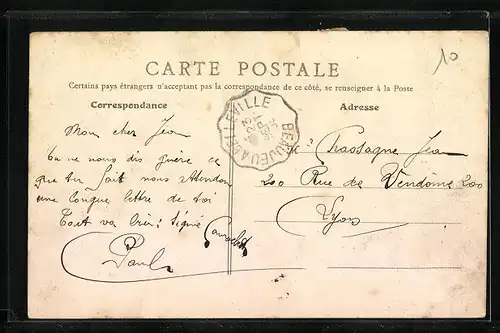 10
CARTE POSTALE
Certains pays étrangers n'acceptant pas la correspondance de ce côté, se renseigner à la Poste
Correspondance
Adresse
BEAUJEU A BELLEVILLE
Mon cher Jean
tu ne nous dis guère ce
que tu fait nous attendons
une longue lettre de toi
Tout va bien: Signé
Paul
Chassagne Jean
200 Rue de Vendôme 200
Lyon